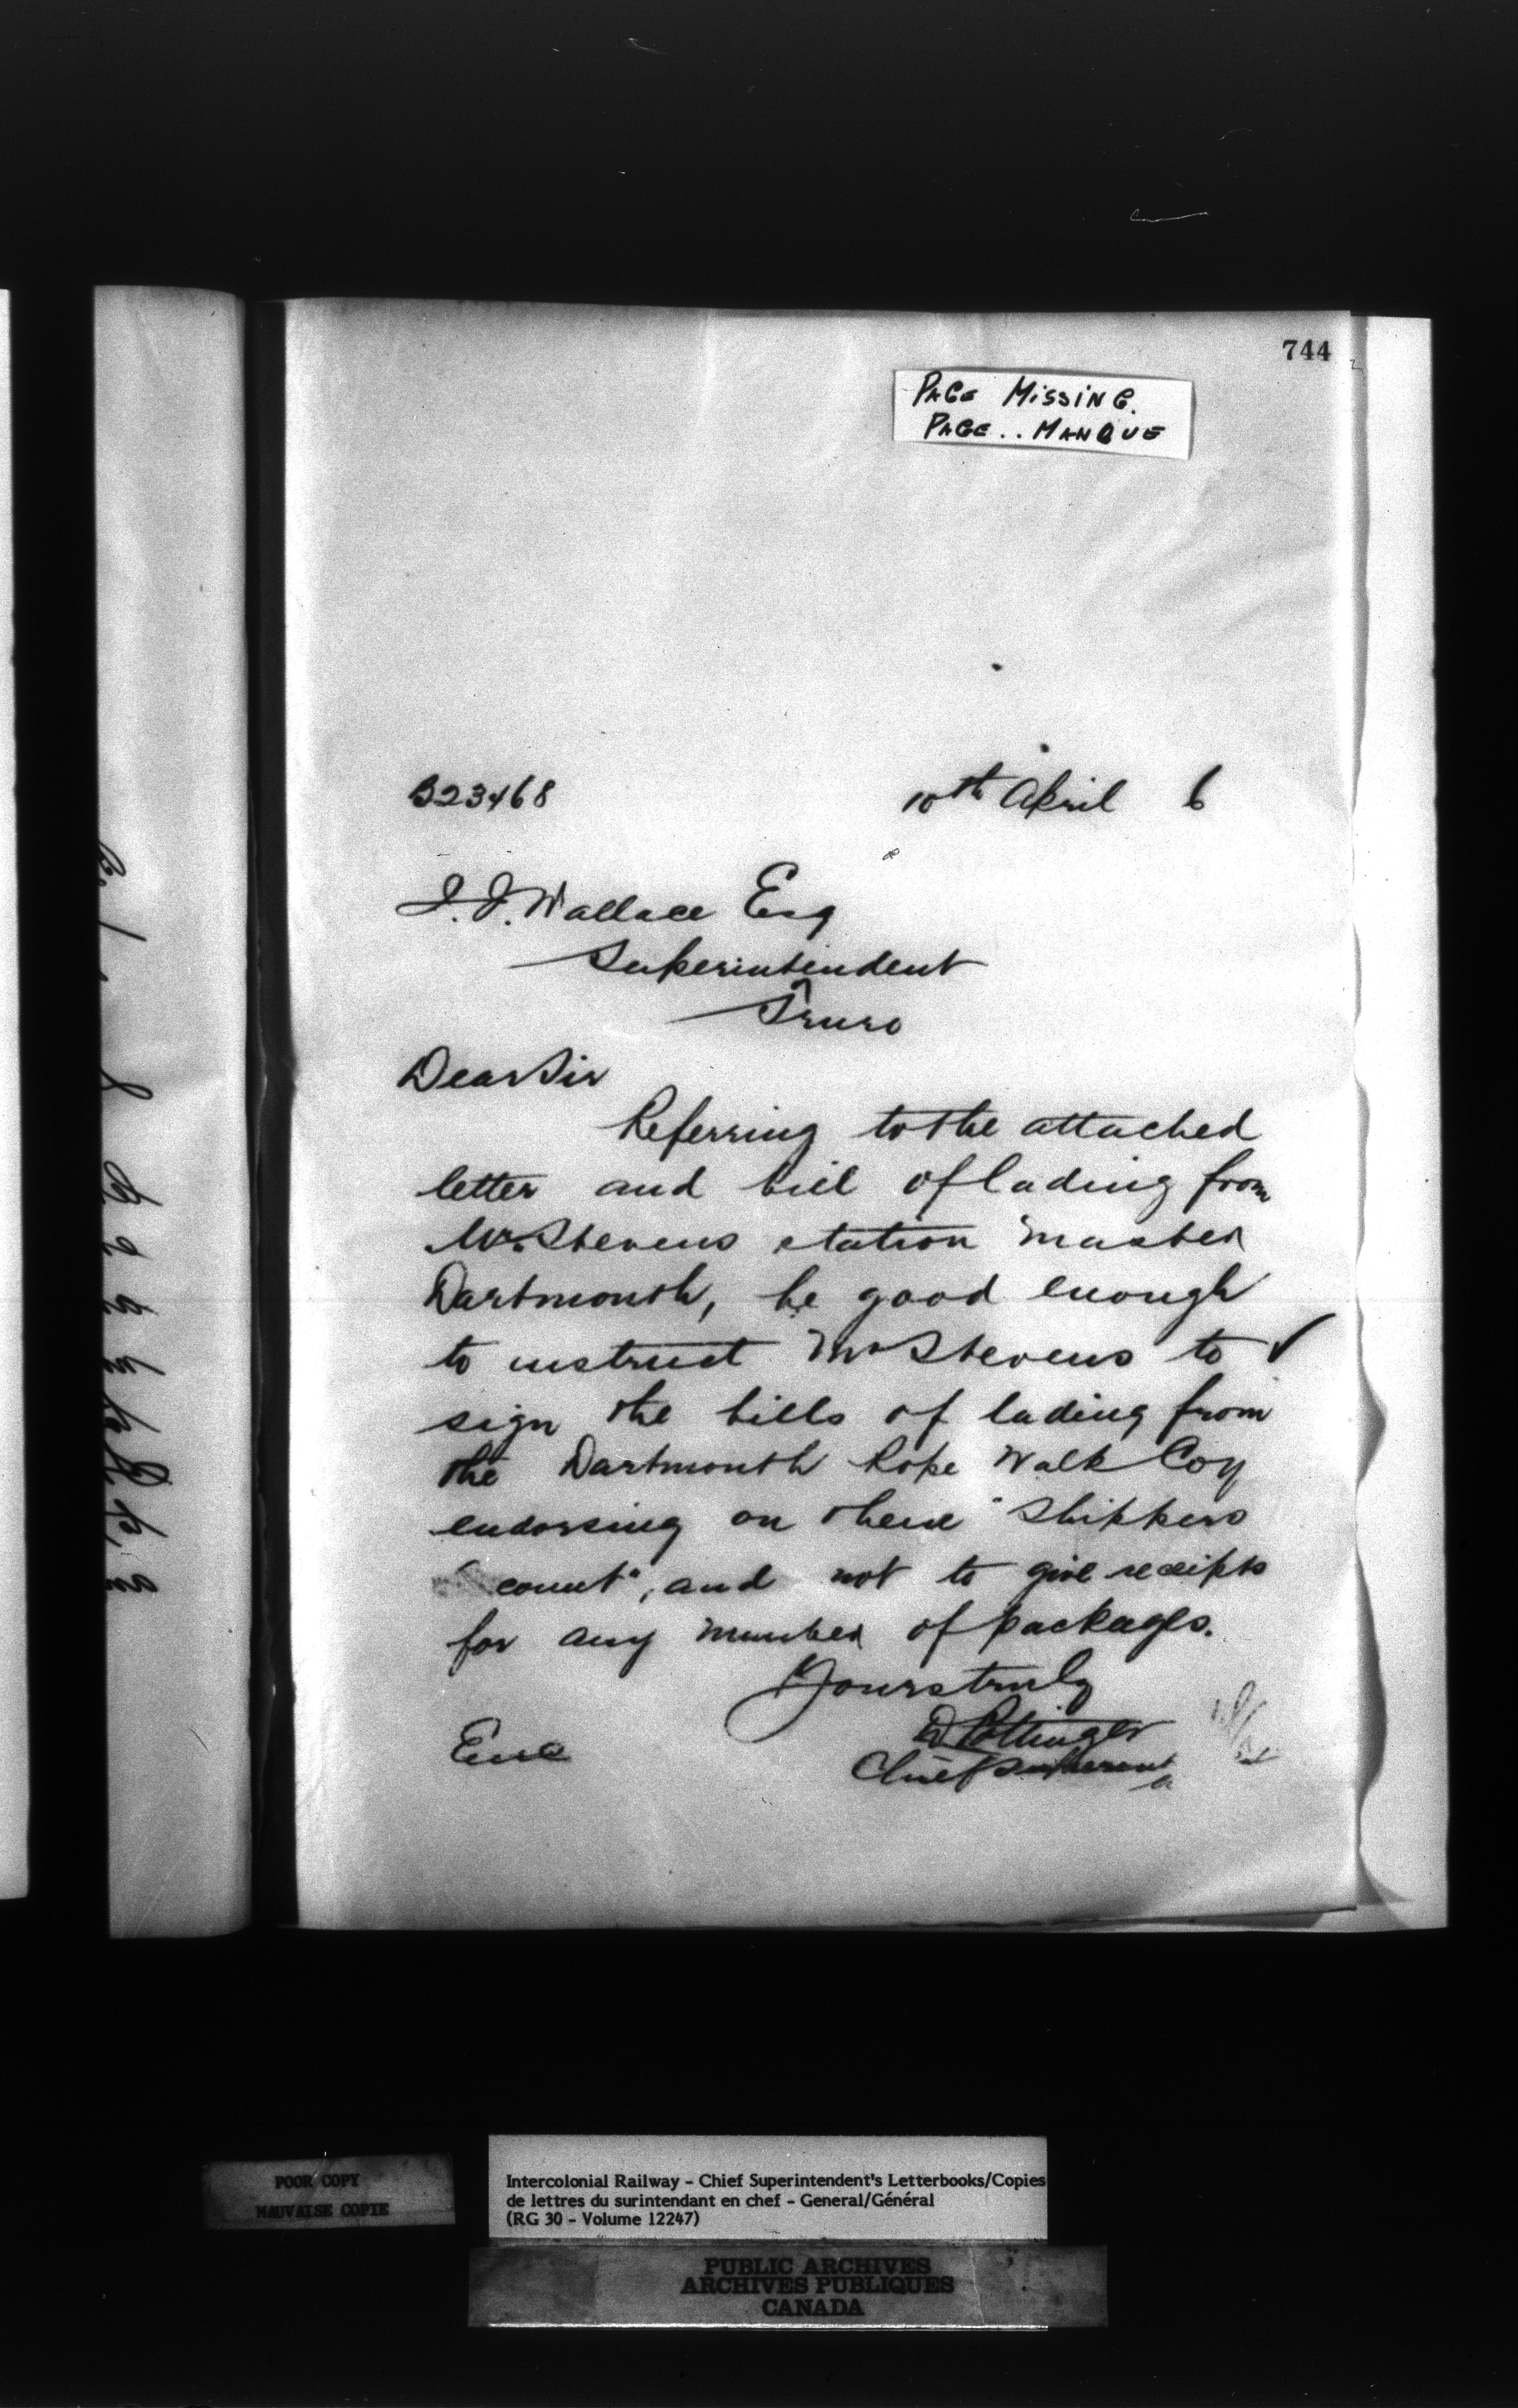 744
PAGE MISSING.
PAGE.. MANQUE
B23468 10th April 6
J. J. Wallace Esq
Superintendent
Truro
Dear Sir
Referring to the attached
letter and bill of lading from
Mr. Stevens station master
Dartmouth, be good enough
to instruct Mr Stevens to ✓
sign the bills of lading from
the Dartmouth Rope Walk Coy
endorsing on them "Shippers
count", and not to give receipts
for any number of packages.
Yours truly
D Pottinger
Chief Superint
Enc
POOR COPY
MAUVAISE COPIE
Intercolonial Railway - Chief Superintendent's Letterbooks/Copies
de lettres du surintendant en chef - General/Général
(RG 30 - Volume 12247)
PUBLIC ARCHIVES
ARCHIVES PUBLIQUES
CANADA